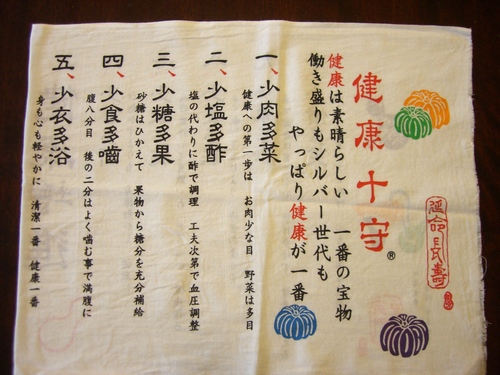 延命長壽
健康十守®
健康は素晴らしい 一番の宝物
働き盛りもシルバー世代も
やっぱり健康が一番
一、少肉多菜
健康への第一歩は お肉少な目 野菜は多目
二、少塩多酢
塩の代わりに酢で調理 工夫次第で血圧調整
三、少糖多果
砂糖はひかえて 果物から糖分を充分補給
四、少食多嚙
腹八分目 後の二分はよく噛む事で満腹に
五、少衣多浴
身も心も軽やかに 清潔一番 健康一番